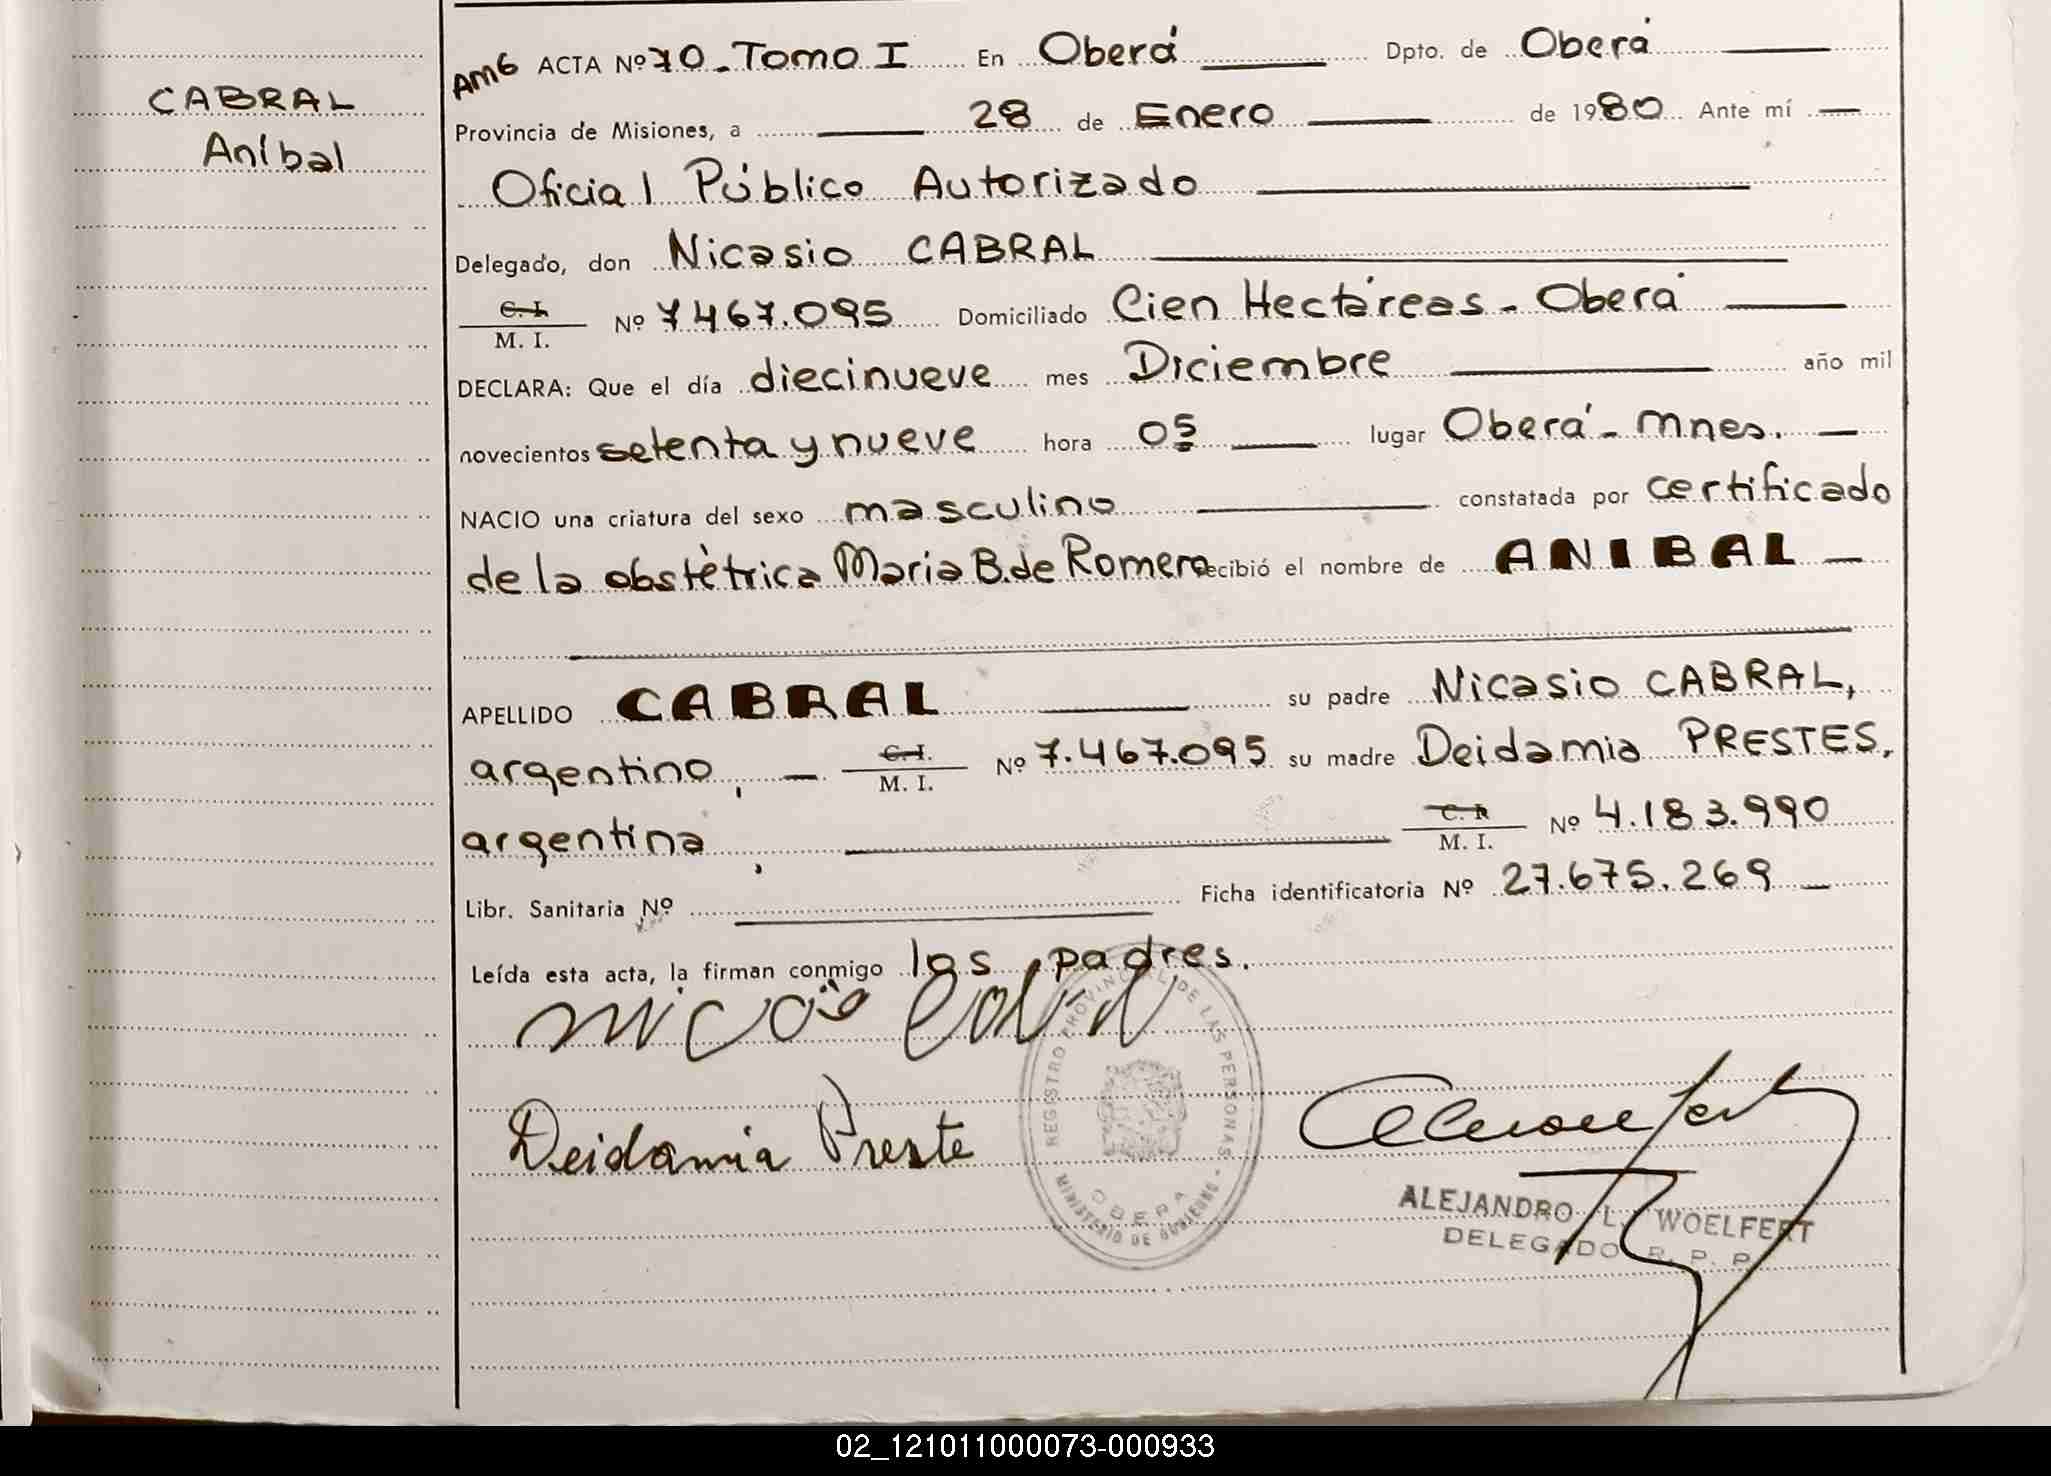 CABRAL
Aníbal
AMG ACTA Nº 70 - Tomo I En Oberá Dpto. de Oberá
Provincia de Misiones, a 28 de Enero de 1980 Ante mí
Oficial Público Autorizado
Delegado, don Nicasio CABRAL
C. I.
M. I. Nº 7467.095 Domiciliado Cien Hectáreas - Oberá
DECLARA: Que el día diecinueve mes Diciembre año mil
novecientos setenta y nueve hora 05 lugar Oberá - Mnes.
NACIO una criatura del sexo masculino constatada por certificado
de la obstètrica Maria B. de Romero recibió el nombre de ANIBAL
APELLIDO CABRAL su padre Nicasio CABRAL,
argentino, C. I. M. I. Nº 7.467.095 su madre Deidamia PRESTES,
argentina, C. I. M. I. Nº 4.183.990
Libr. Sanitaria Nº Ficha identificatoria Nº 27.675.269
Leída esta acta, la firman conmigo los padres.
Deidamia Preste
REGISTRO PROVINCIAL DE LAS PERSONAS - MINISTERIO DE GOBIERNO -
OBERA
ALEJANDRO L. WOELFERT
DELEGADO R. P. P.
02_121011000073-000933